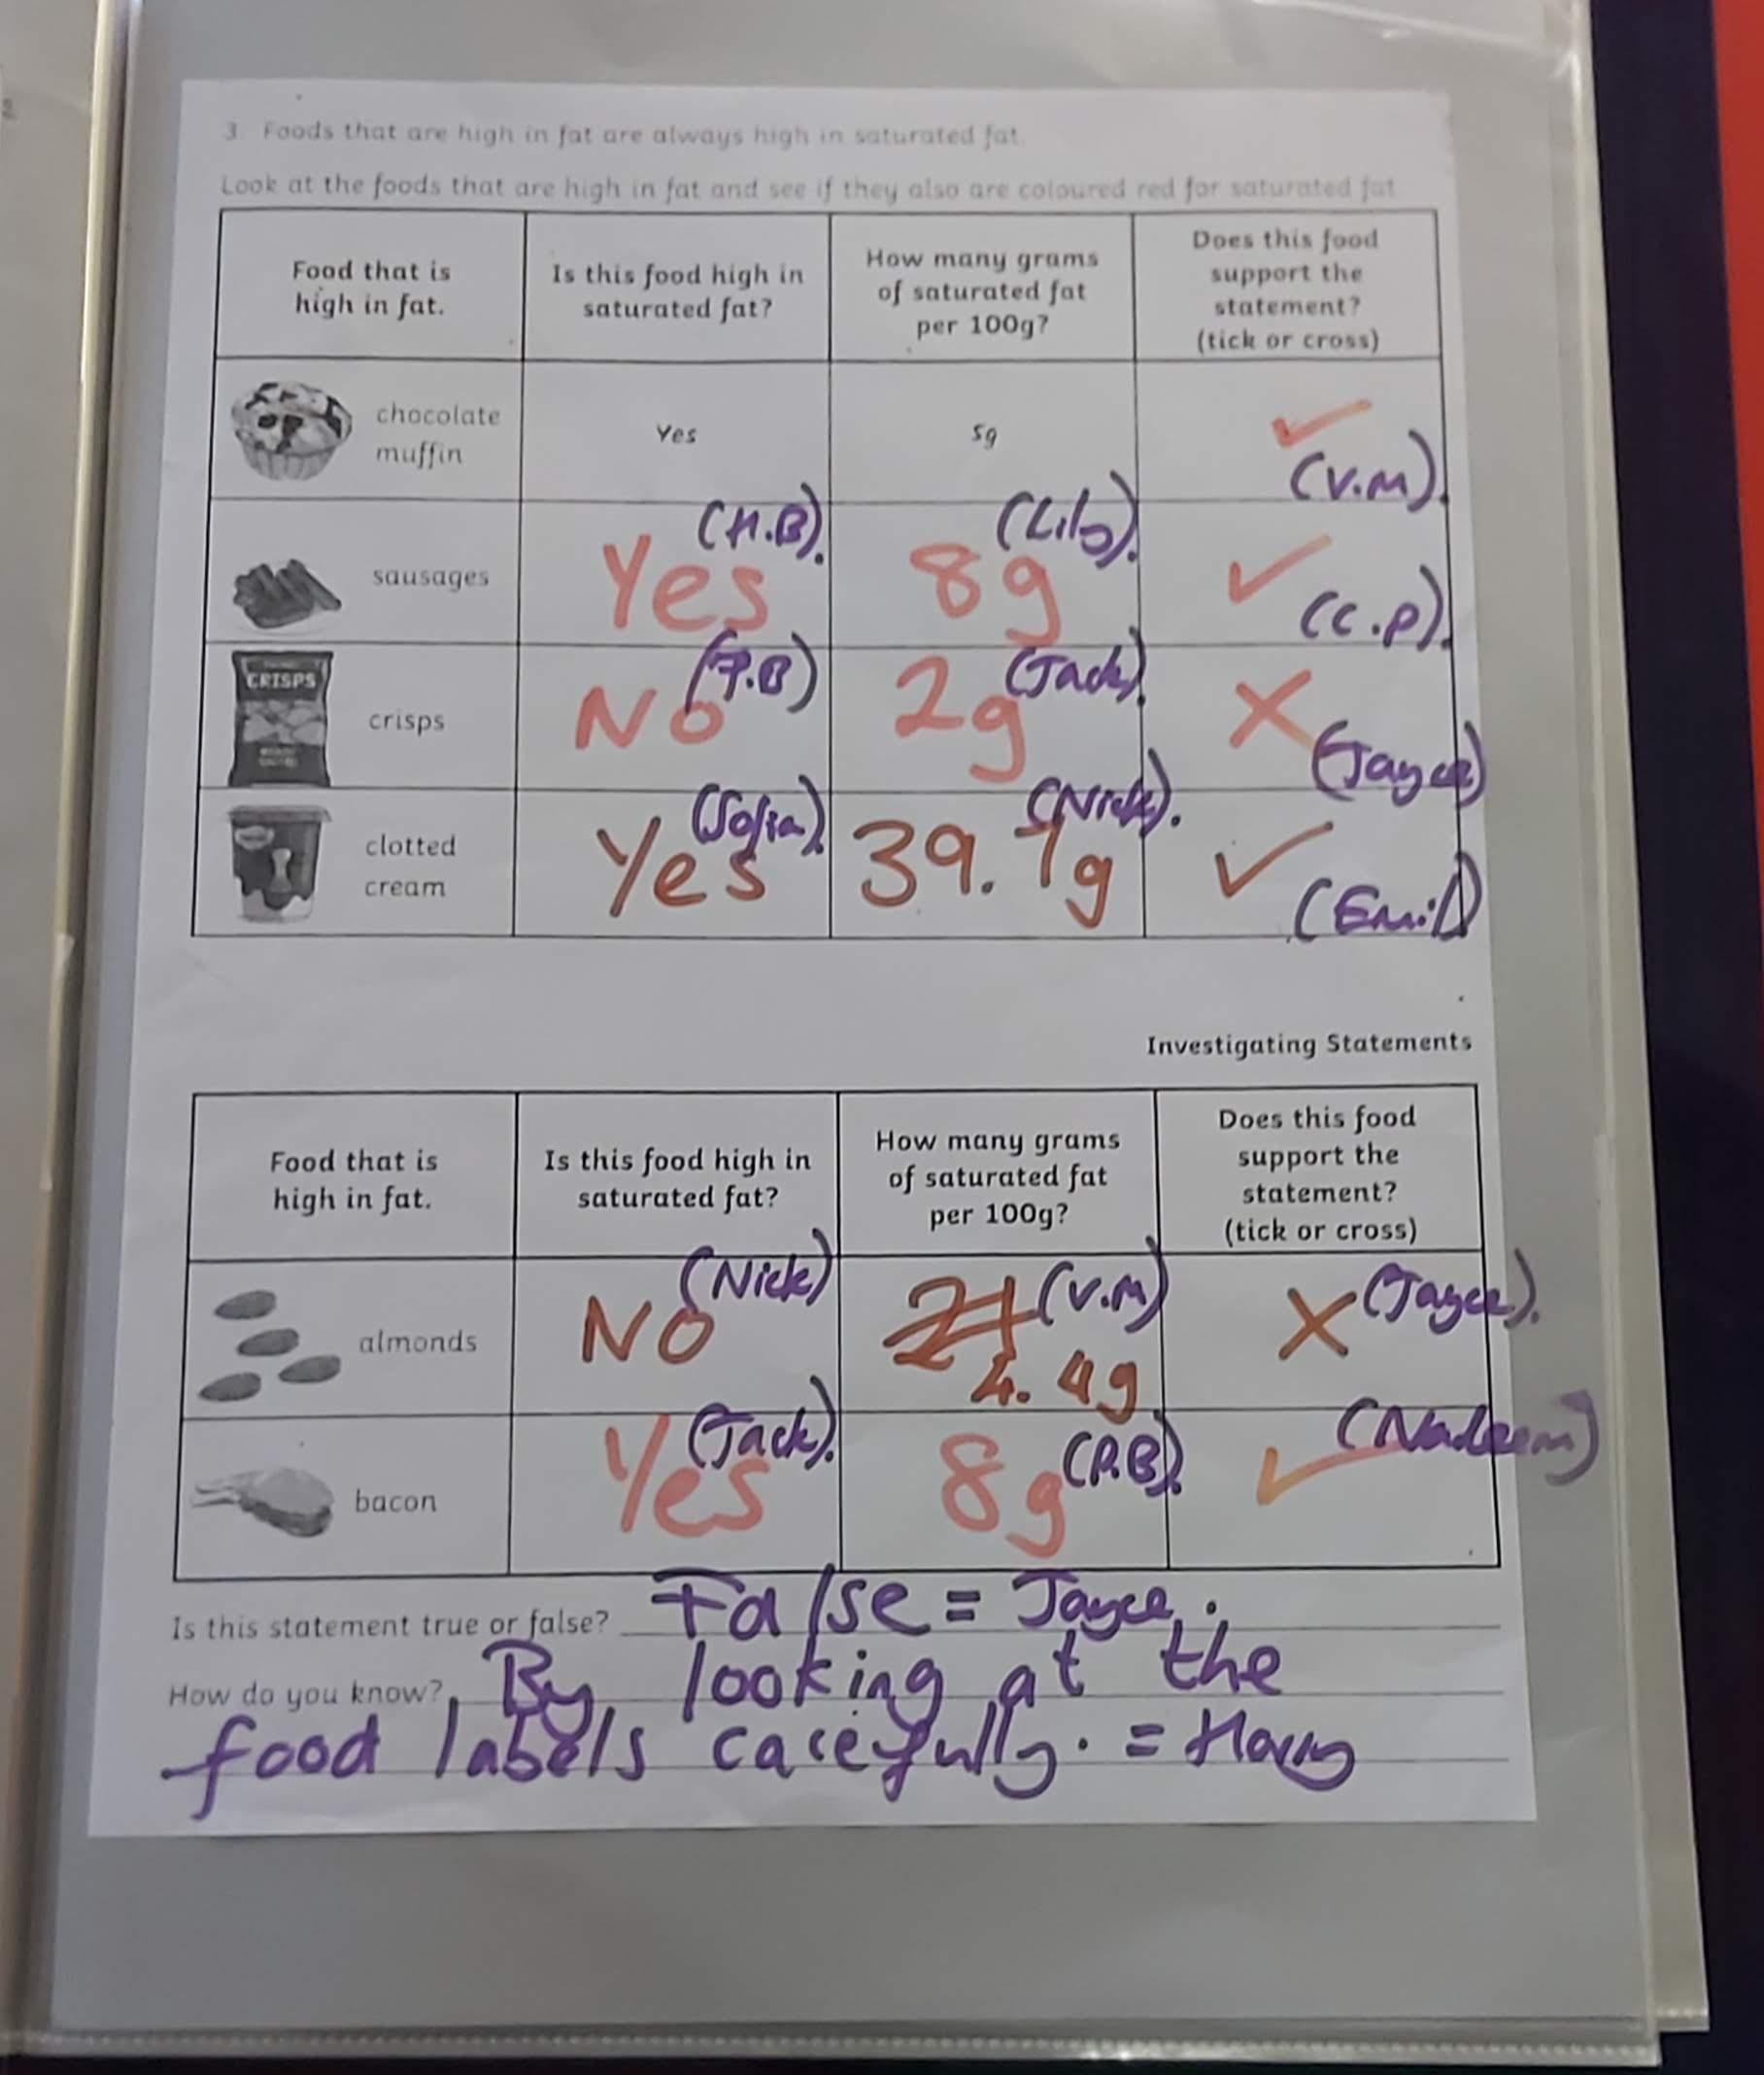 3 Foods that are high in fat are always high in saturated fat.
Look at the foods that are high in fat and see if they also are coloured red for saturated fat
Food that is high in fat.
Is this food high in saturated fat?
How many grams of saturated fat per 100g?
Does this food support the statement? (tick or cross)
chocolate muffin
Yes
5g
✓
(V.M).
sausages
Yes (H.B).
8g
✓ (C.P).
CRISPS
crisps
No
2g (Jack).
✗ (Jayce)
clotted cream
Yes (Sofia).
39.7g (Nick).
✓ (Emil)
Investigating Statements
Food that is high in fat.
Is this food high in saturated fat?
How many grams of saturated fat per 100g?
Does this food support the statement? (tick or cross)
almonds
No (Nick)
(V.M)
4.4g
✗ (Jayce).
bacon
Yes (Jack).
8g (P.B).
✓ (Nadeem)
Is this statement true or false? False = Jayce.
How do you know? By looking at the
food labels carefully. = Harry